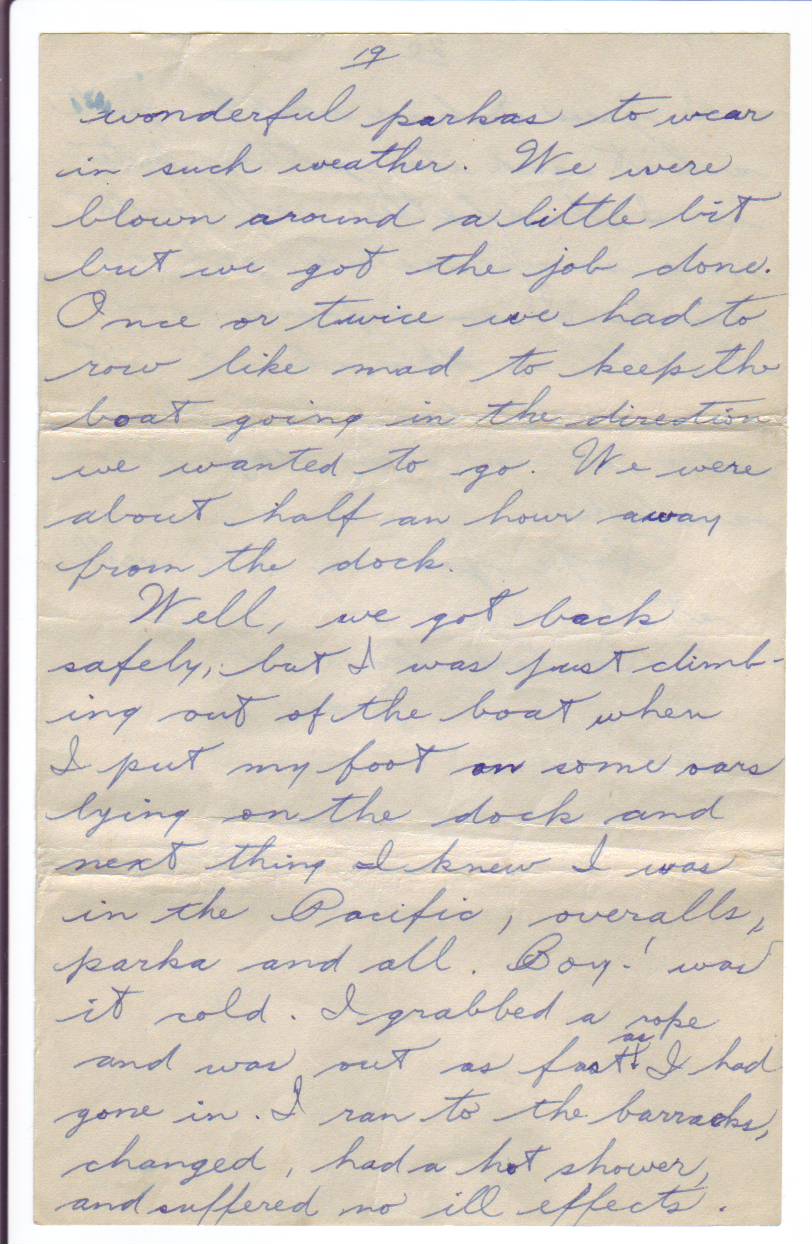 19
wonderful parkas to wear
in such weather. We were
blown around a little bit
but we got the job done.
Once or twice we had to
row like mad to keep the
boat going in the direction
we wanted to go. We were
about half an hour away
from the dock.
Well, we got back
safely, but I was just climb-
ing out of the boat when
I put my foot on some oars
lying on the dock and
next thing I knew I was
in the Pacific, overalls,
parka and all. Boy! was
it cold. I grabbed a rope
and was out as fast as I had
gone in. I ran to the barracks,
changed, had a hot shower,
and suffered no ill effects.